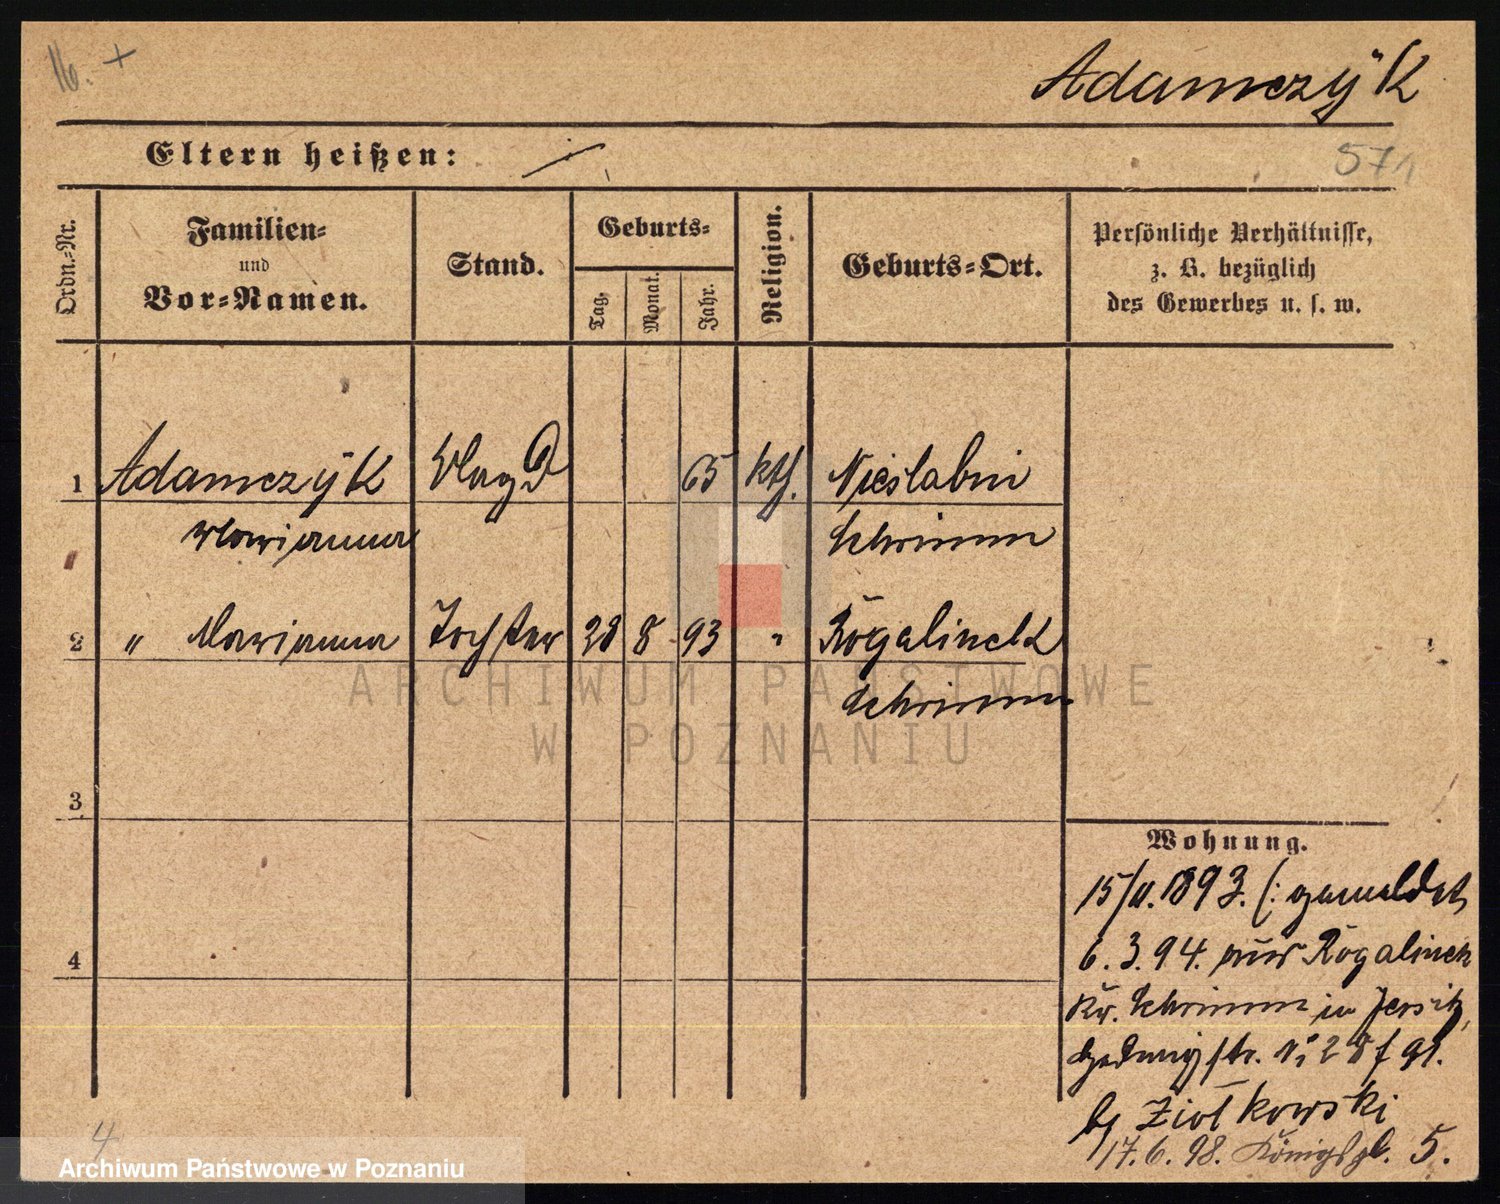 16. +
Adamczÿk
Eltern heißen:
571
Ordn.-Nr.
Familien-
und
Vor-Namen.
Stand.
Geburts-
Tag.
Monat.
Jahr.
Religion.
Geburts-Ort.
Persönliche Verhältnisse,
z. B. bezüglich
des Gewerbes u. s. w.
1 Adamczÿk Magd 65 kth. Nieslabin
Marianna Schrimm
2 " Marianna Tochter 28 8 93 " Rogalinek
Schrimm
ARCHIWUM PAŃSTWOWE
W POZNANIU
3
4
Wohnung.
15/11.1893. (: gemeldet
6.3.94. aus Rogalinek
Kr. Schrimm in Jersitz,
Hedwigstr. 28
bei Ziołkowski
17.6.98. Königspl. 5.
4
Archiwum Państwowe w Poznaniu